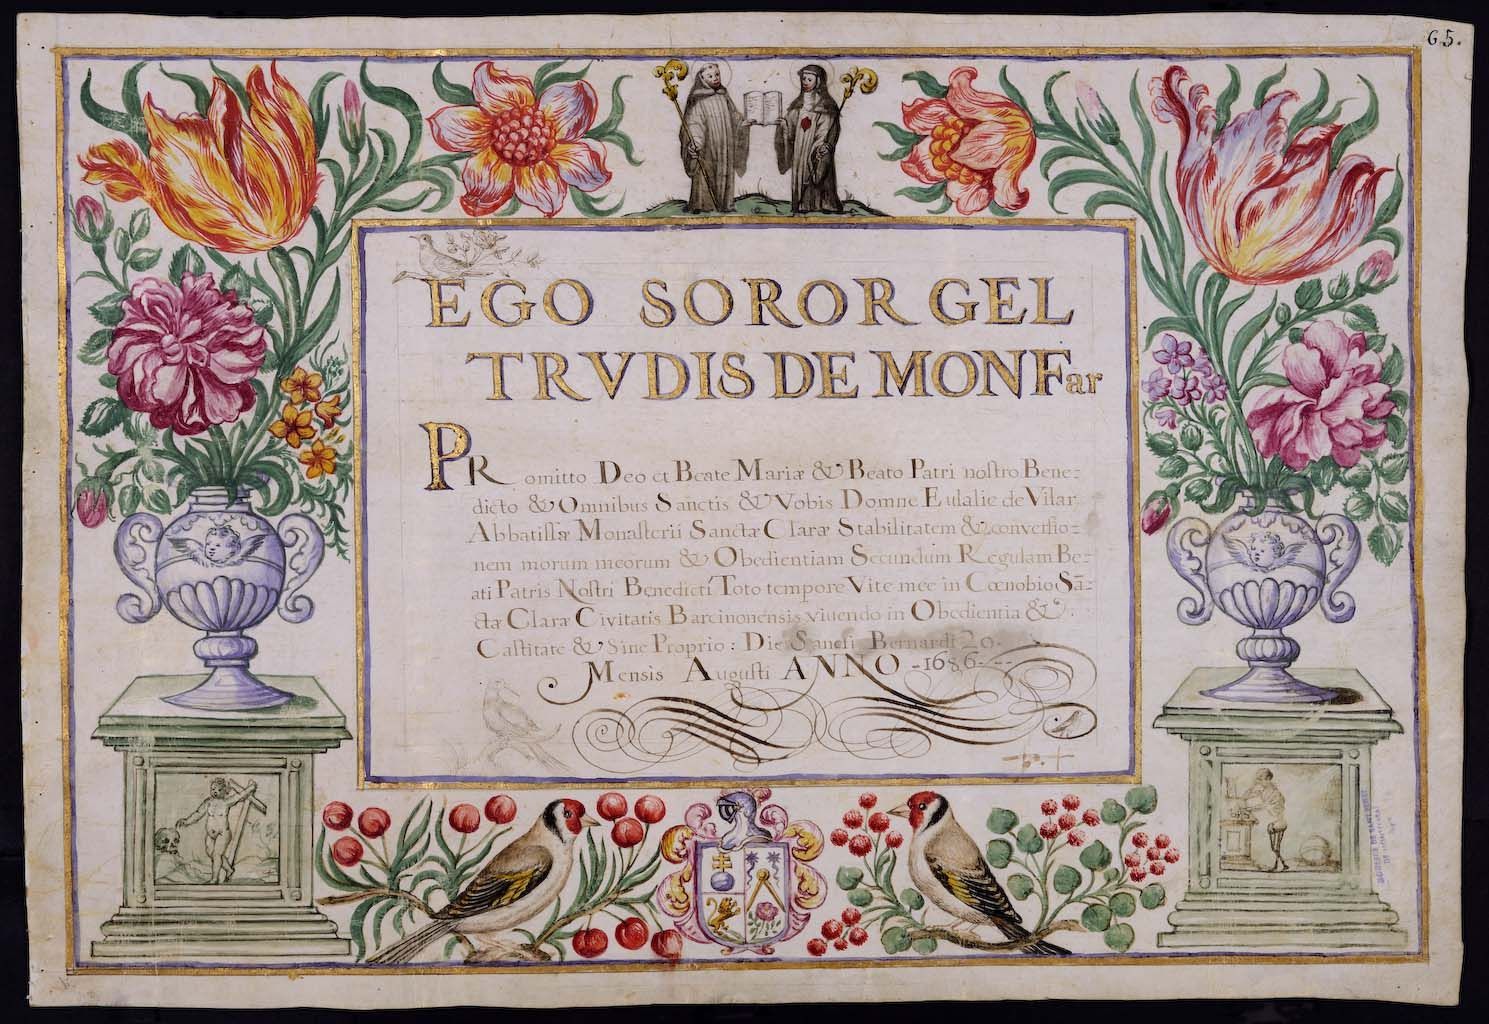 65.
EGO SOROR GEL
TRVDIS DE MONFar
PRomitto Deo et Beate Mariæ & Beato Patri noſtro Bene-
dicto & Omnibus Sanctis & Vobis Domne Eulalie de Vilar
Abbatiſſæ Monaſterii Sanctæ Claræ Stabilitatem & converſio-
nem morum meorum & Obedientiam Secundum Regulam Be-
ati Patris Noſtri Benedicti Toto tempore Vite mee in Cœnobio Sā-
ctæ Claræ Civitatis Barcinonensis vivendo in Obedientia &
Caſtitate & Sine Proprio : Die Sancti Bernardi 20
Mensis Auguſti ANNO -1686-